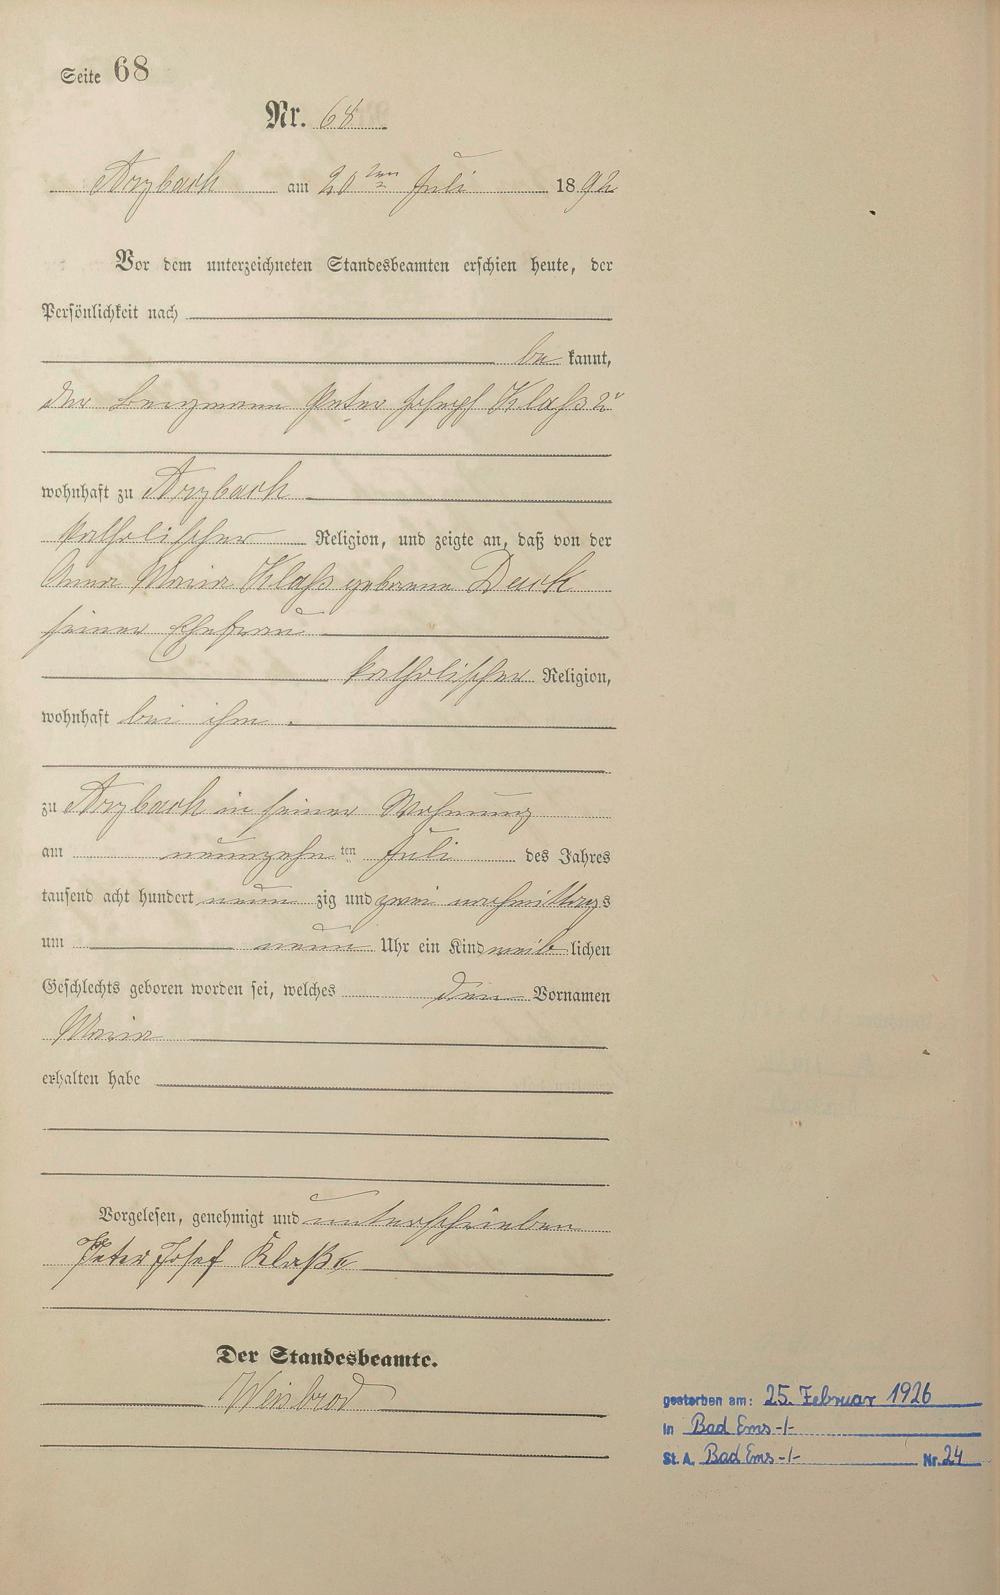 Seite 68
Nr. 68
Arzbach am 20ten Juli 1892
Vor dem unterzeichneten Standesbeamten erschien heute, der
Persönlichkeit nach
bekannt,
der Bergmann Peter Joseph Klaß 2r
wohnhaft zu Arzbach
katholischer Religion, und zeigte an, daß von der
Anna Maria Klaß geborene
seiner Ehefrau
katholischer Religion,
wohnhaft bei ihm
zu Arzbach in seiner Wohnung
am neunzehnten Juli des Jahres
tausend acht hundert neunzig und zwei nachmittags
um neun Uhr ein Kind weiblichen
Geschlechts geboren worden sei, welches den Vornamen
Maria
erhalten habe
Vorgelesen, genehmigt und unterschrieben
Peter Josef Klaß
Der Standesbeamte.
Weisbrod
gestorben am: 25. Februar 1926
in Bad Ems -/-
St. A. Bad Ems -/- Nr. 24